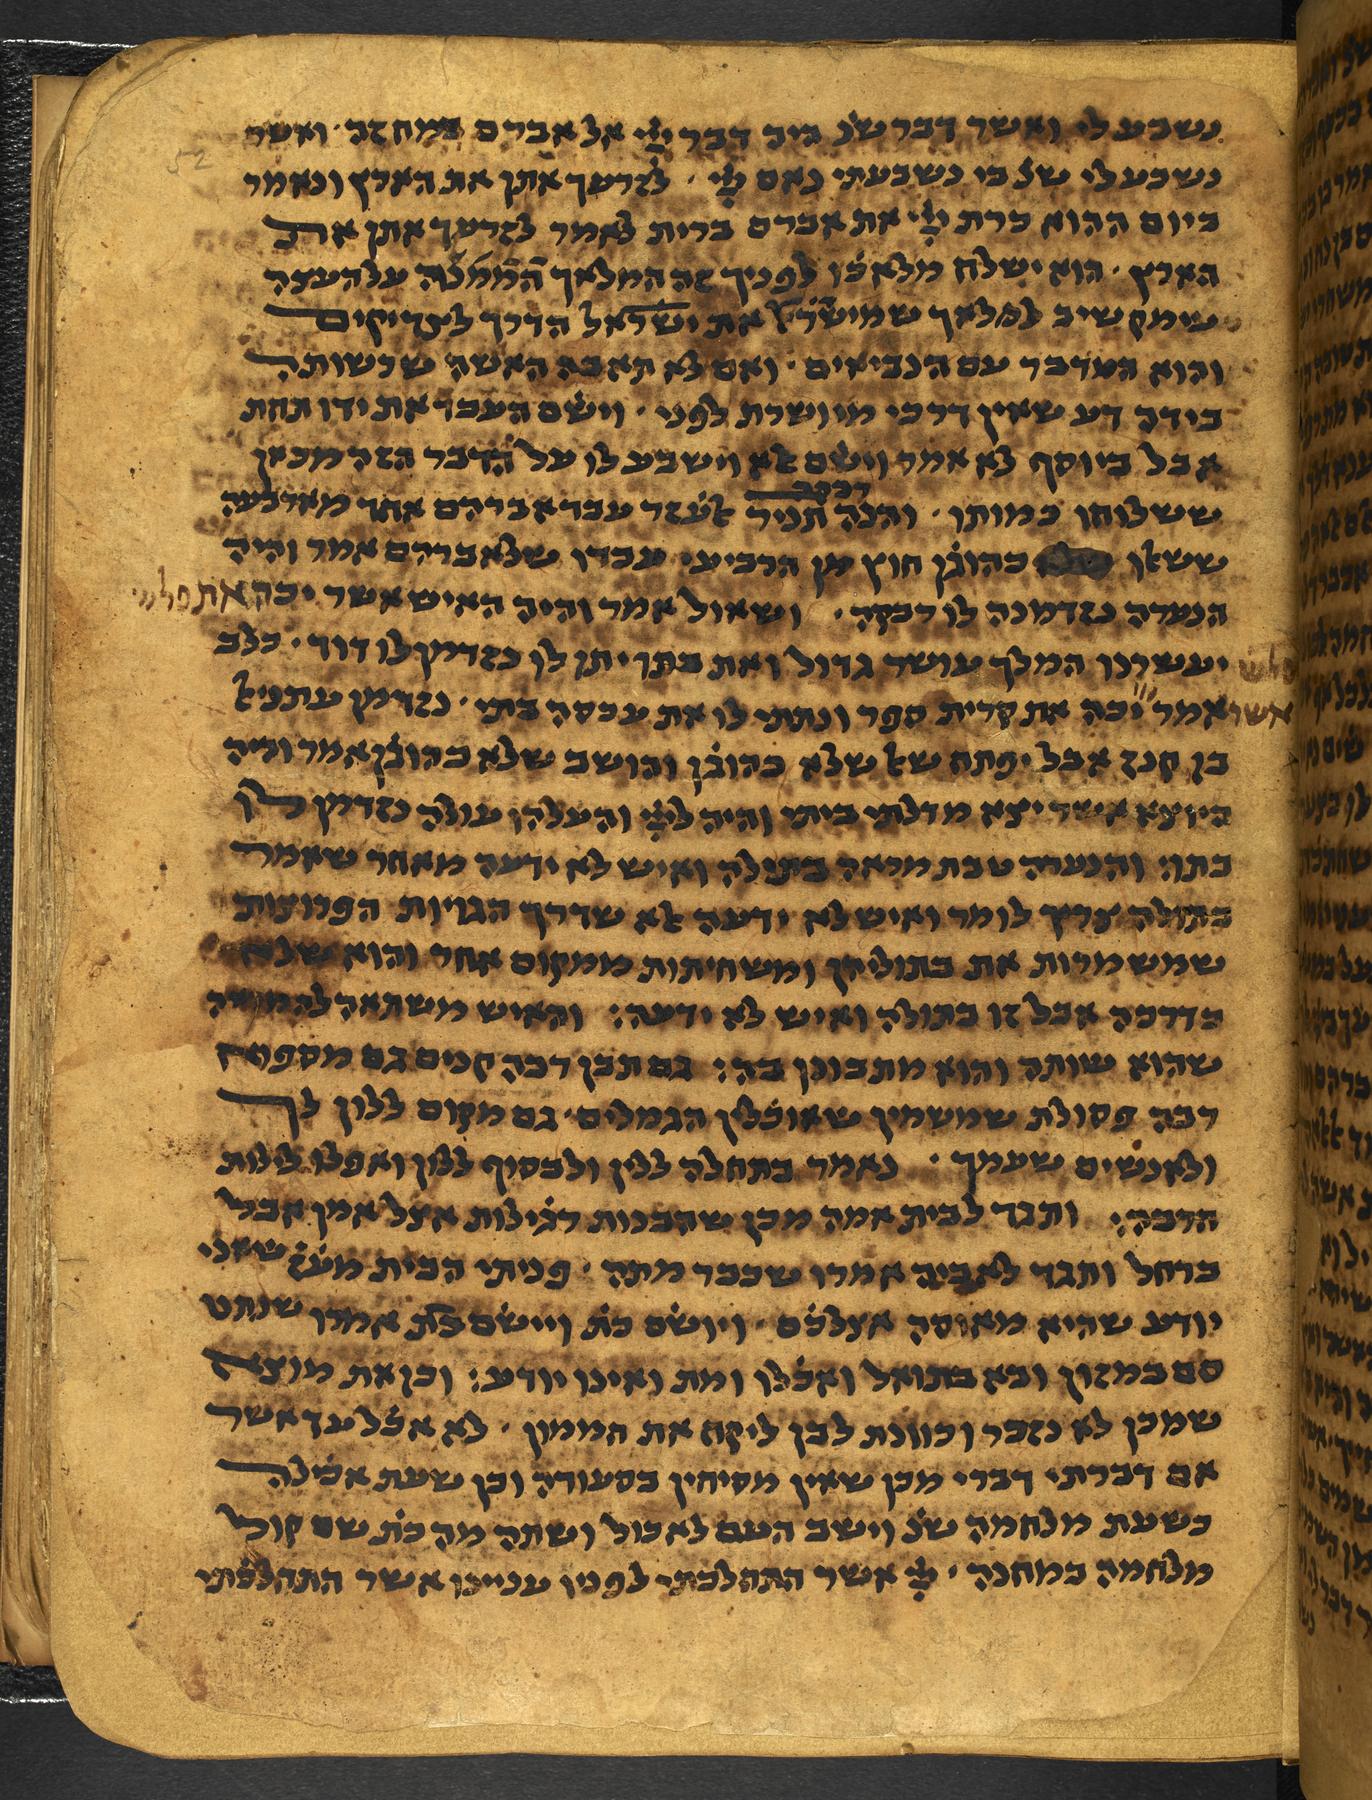 נשבע לי ואשר דבר שנ גיכ דבר ייי אל אברם במחזה · ואשר
נשבע לי שנ בי נשבעתי נאם ייי · לזרעך אתן את הארץ ונאמר
ביום ההוא כרת ייי את אברם ברית לאמר לזרעך אתן את
הארץ · הוא ישלח מלאכו לפניך זה המלאך הממנה על העצה
שמיישר את ישראל הדרך לצדיקים
והוא המדבר עם הנביאים · ואם לא תאבה האשה שכשותה
בידך דע שאין דרכי מיושרת לפני · וישם העבד את ידו תחת
אבל ביוסף לא אמר וישם לא וישבע לו על הדבר הזה מכאן
ששלוחו כמותו · והנה רבקה אלעזר עבד אברהם אחד מארבעה
ששאלו כהוגן חוץ מן הרביעי עבדו שלאברהם אמר והיה
הנערה נזדמנה לו רבקה · ושאול אמר והיה האיש אשר יכה את פלשי
יעשרנו המלך עושר גדול ואת בתו יתן לו נזדמן לו דוד · כלב
אמר אשר יכה את קרית ספר ונתתי לו את עכסה בתי · נזדמן עתניאל
בן קנז אבל יפתח שאל שלא כהוגן והושב שלא כהוגן אמר והיה
היוצא אשר יצא מדלתי ביתי והיה לייי והעלהו עולה נזדמן לו
בתו: והנערה טבת מראה בתולה ואיש לא ידעה מאחר שאמר
בתולה צריך לומר ואיש לא ידעה לא שדרך הגויות הפרוצות
שמשמרות את בתוליהן ומשחיתות ממקום אחר והוא שלא
כדרכה אבל זו בתולה ואיש לא ידעה: והאיש משתאה לה
שהוא שותה והוא מתבונן בה: גם תבן רבה קנים גם מספוא
רבה פסולת שמשמין שאוכלין הגמלים · גם מקום ללון לך
ולאנשים שעמך · נאמר בתחלה ללין ולבסוף ללון ואפלו לילות
הרבה: ותגד לבית אמה מכן שהבנות רגילות אצל אמן אבל
ברחל ותגד לאביה אמרו שכבר מתה · פניתי הבית מעז שאני
יודע שהיא מאוסה אצלכם · ויושם כת ויישם כת אמרו שנתנו
סם במזון ובא בתואל ואכלו ומת ואינו יודע: וכן את מוצא
שמכן לא נזכר וכוונת לבן ליקח את הממון · לא אכל עד אשר
אם דברתי דברי מכן שאין מסיחין בסעודה וכן שעת אכילה
כשעת מלחמה שנ וישב העם לאכול ושתה מה כת שם קול
מלחמה במחנה · ייי אשר התהלכתי לפניו עניינו אשר התהלכתי